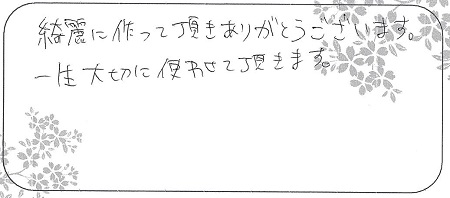 綺麗に作って頂きありがとうございます。
一生大切に使わせて頂きます。